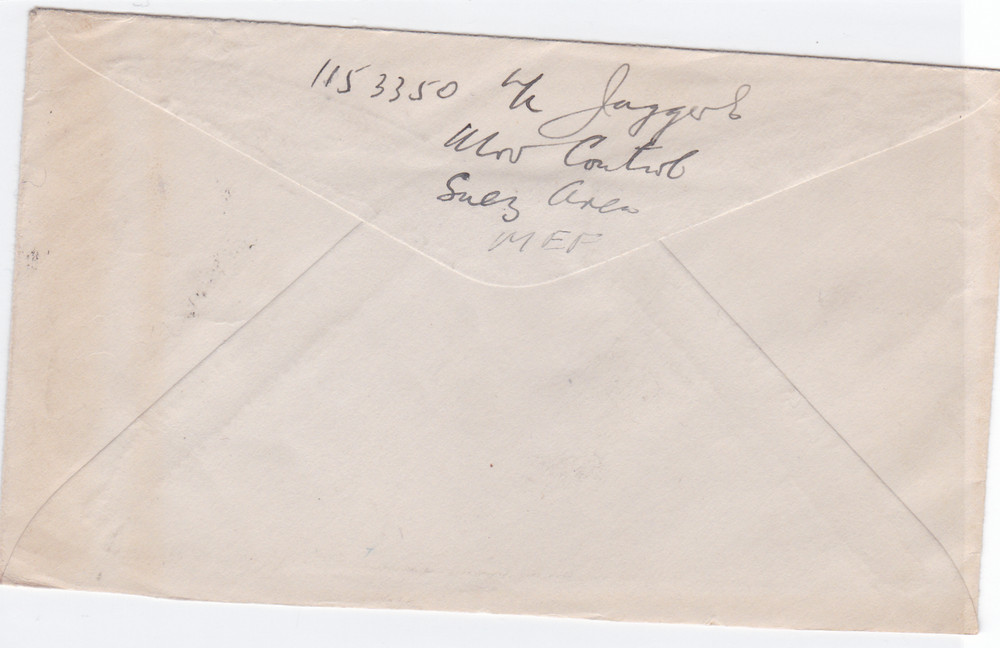 1153350 L/C Jagger E
Mov Control
Suez Area
MEF